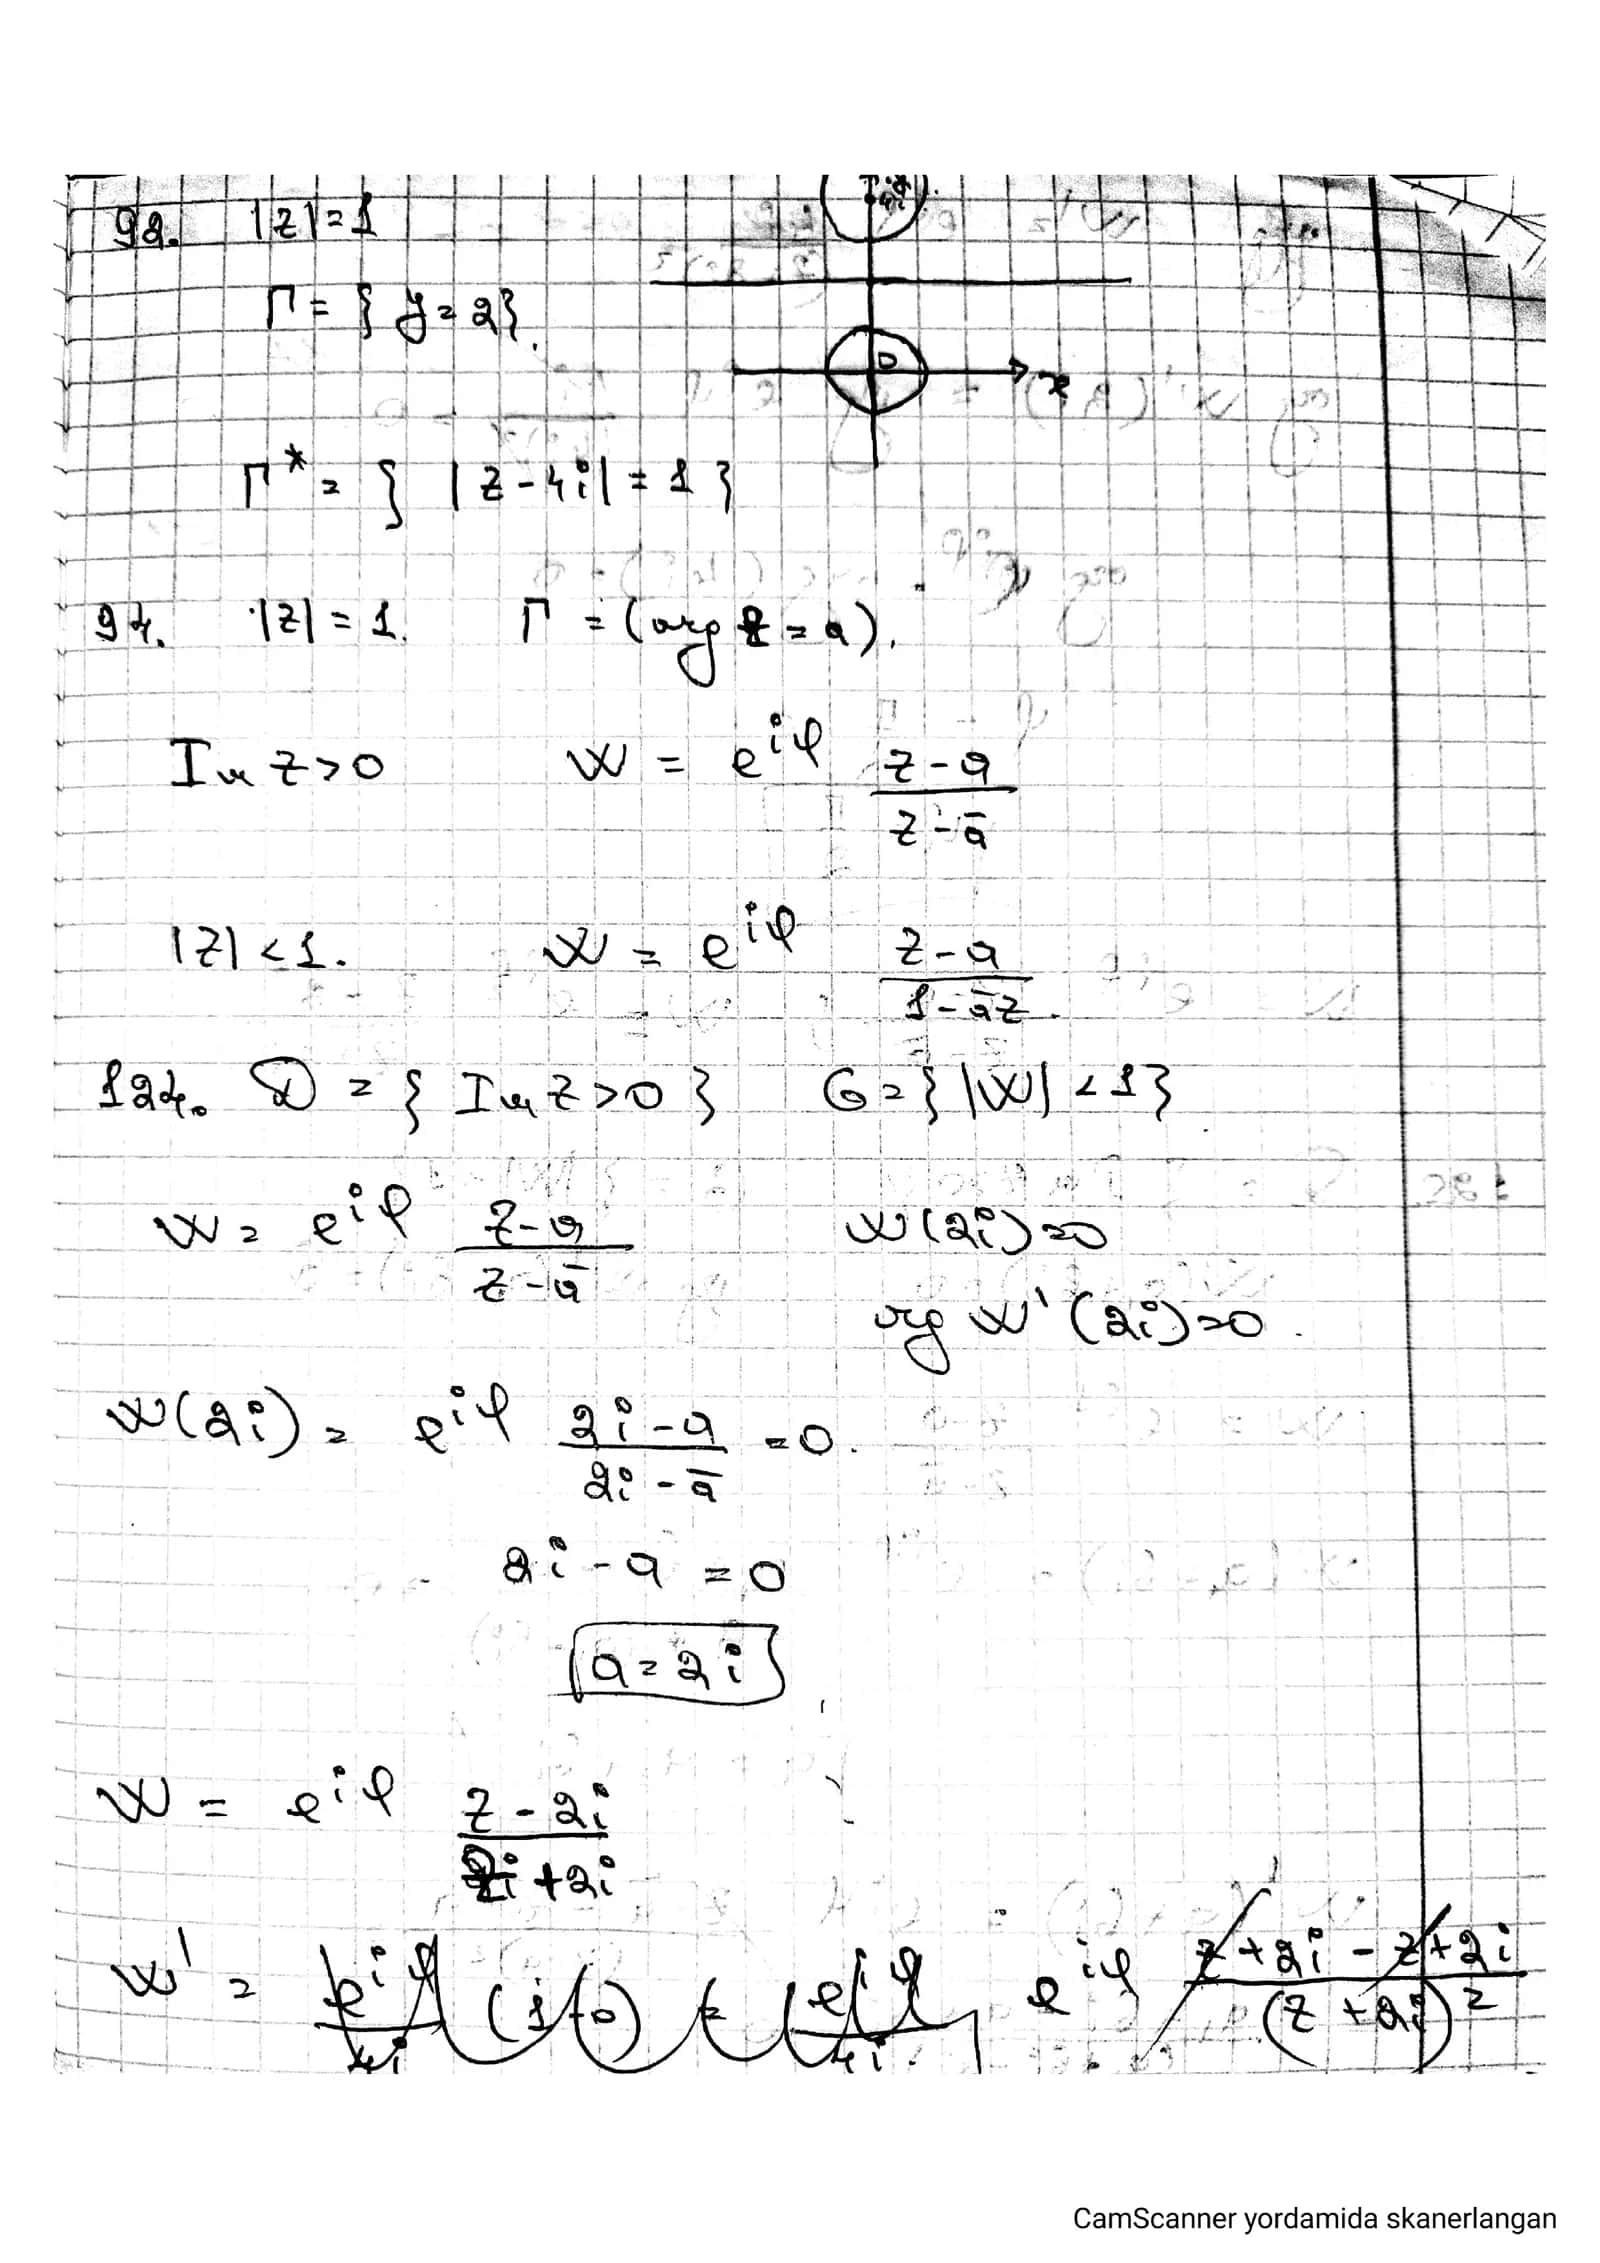 92. |z|=1
Γ = { y = 2}.
D x
Γ* = { |z-4i| = 1 }
94. |z| = 1. Γ = (arg z = a).
Im z > 0 w = e^{iφ} \frac{z-a}{z-ā}
|z| < 1. w = e^{iφ} \frac{z-a}{1-āz}.
124. D = { Im z > 0 } G = { |w| < 1 }
w = e^{iφ} \frac{z-a}{z-ā} w(2i) = 0
arg w'(2i) = 0.
w(2i) = e^{iφ} \frac{2i-a}{2i-ā} = 0.
2i - a = 0
a = 2i
w = e^{iφ} \frac{z-2i}{+2i}
w' = e^{iφ} \frac{z+2i-z+2i}{(z+2i)^2}
CamScanner yordamida skanerlangan